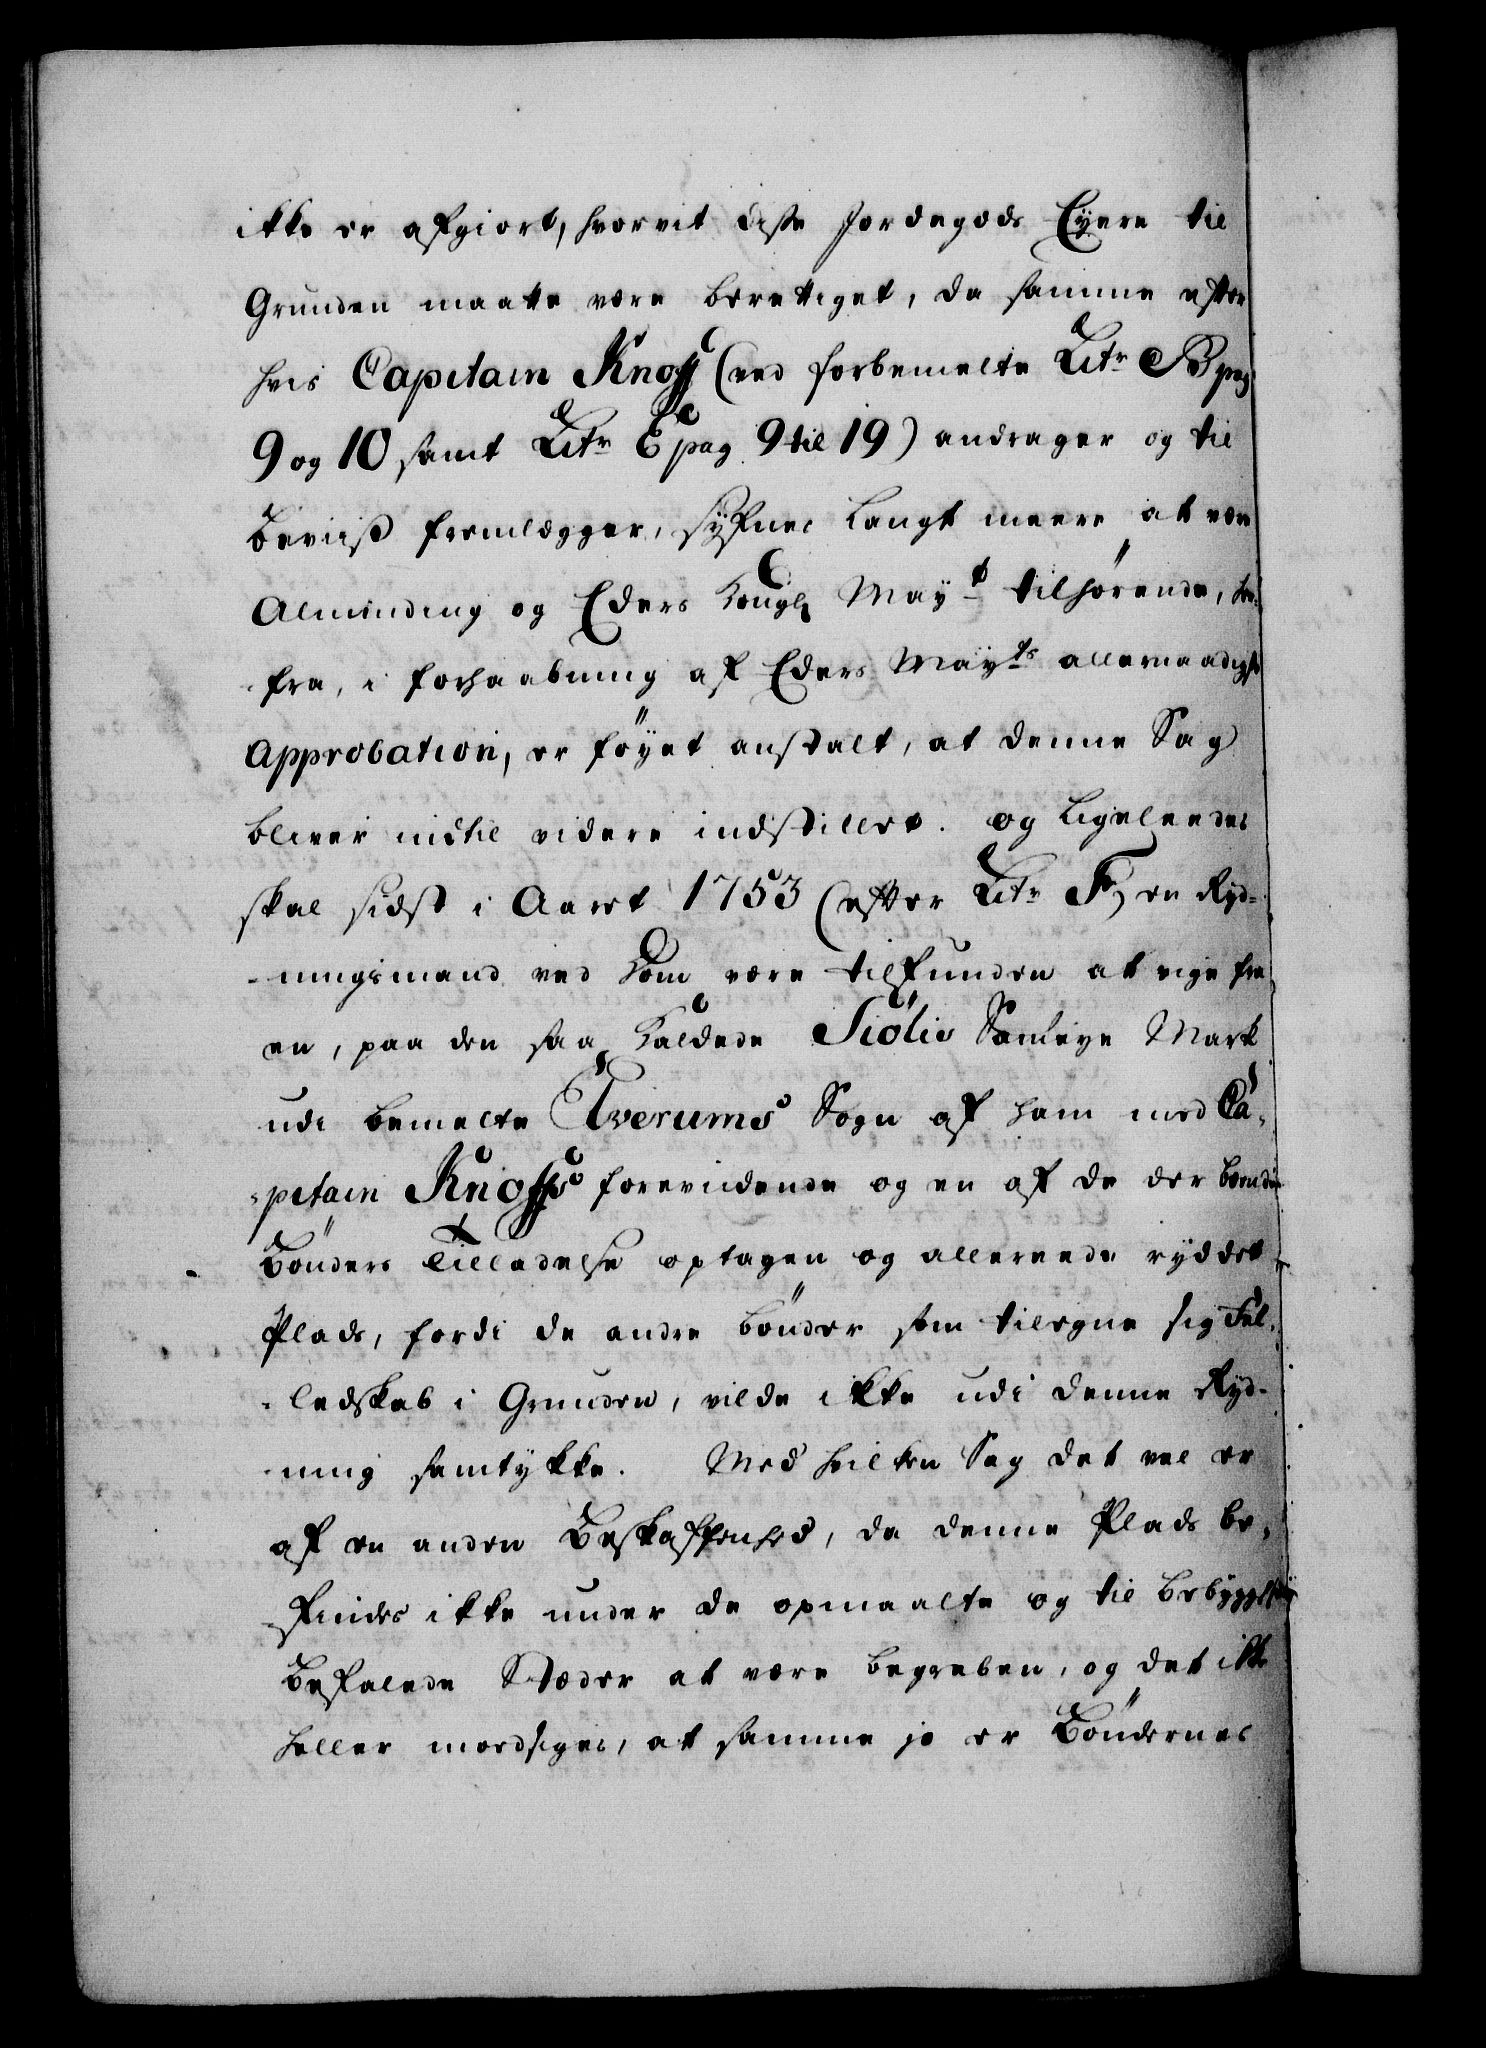 ikke er afgiort, hvorvit disse Jordegods Eyere til
Grunden maatte være berettiget, da samme efter
hvis Capitain Knoff (ved forbemelte Litr B pag
9 og 10 samt Litr E pag 9 til 19) andrager og til
Beviiß fremlægger, syfnes langt meere at være
Alminding og Eders Kongl May.t tilhørende, her-
-fra, i forhaabning af Eders May.ts allernaadigste
Approbation, er føyet anstalt, at denne Sag
bliver indtil videre indstillet. og ligeleedes
skal sidst i Aaret 1753 (efter Litr F) en Ryd-
-ningsmand ved Dom være tilfunden at vige fra
en, paa den saa kaldede Siølie Sameye Mark
udi bemelte Elverums Sogn af ham med Ca-
-pitain Knoffs forevidende og en af de der boende
Bønders Tilladelse optagen og allereede ryddet
Plads, fordi de andre bønder som tilegne sig Fel-
-ledskab i Grunden, vilde ikke udi denne Ryd-
-ning samtykke. Med hvilken Sag det vel er
af en anden Beskaffenhed, da denne Plads be-
-findes ikke under de opmaalte og til bebyggelse
Befalede Stæder at være begreben, og det ikke
heller modsiges, at samme jo er Bøndernes